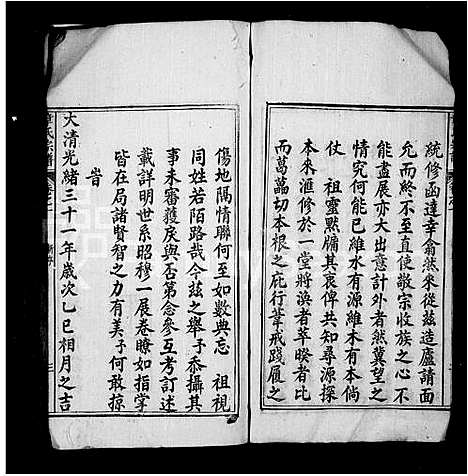 統修函達幸翕然來從茲造廬請面
允而終不至直使敬宗收族之心不
能盡展亦大出意計外者然冀望之
情究何能已維水有源維木有本倘
仗 祖靈黙牖其衷俾共知尋源探
本來滙修於一堂將渙者萃睽者比
而葛藟切本根之庇行葦戒踐履之
傷地隔情聯何至如數典忘 祖視
同姓若陌路哉今茲之舉予忝攝其
事未審獲戾與否第念參互考訂述
載詳明世系昭穆一展卷瞭如指掌
皆在局諸賢智之力有美于何敢掠
旹
大清光緒三十一年歲次乙巳相月之吉
氏宗譜 卷之一 新序 三